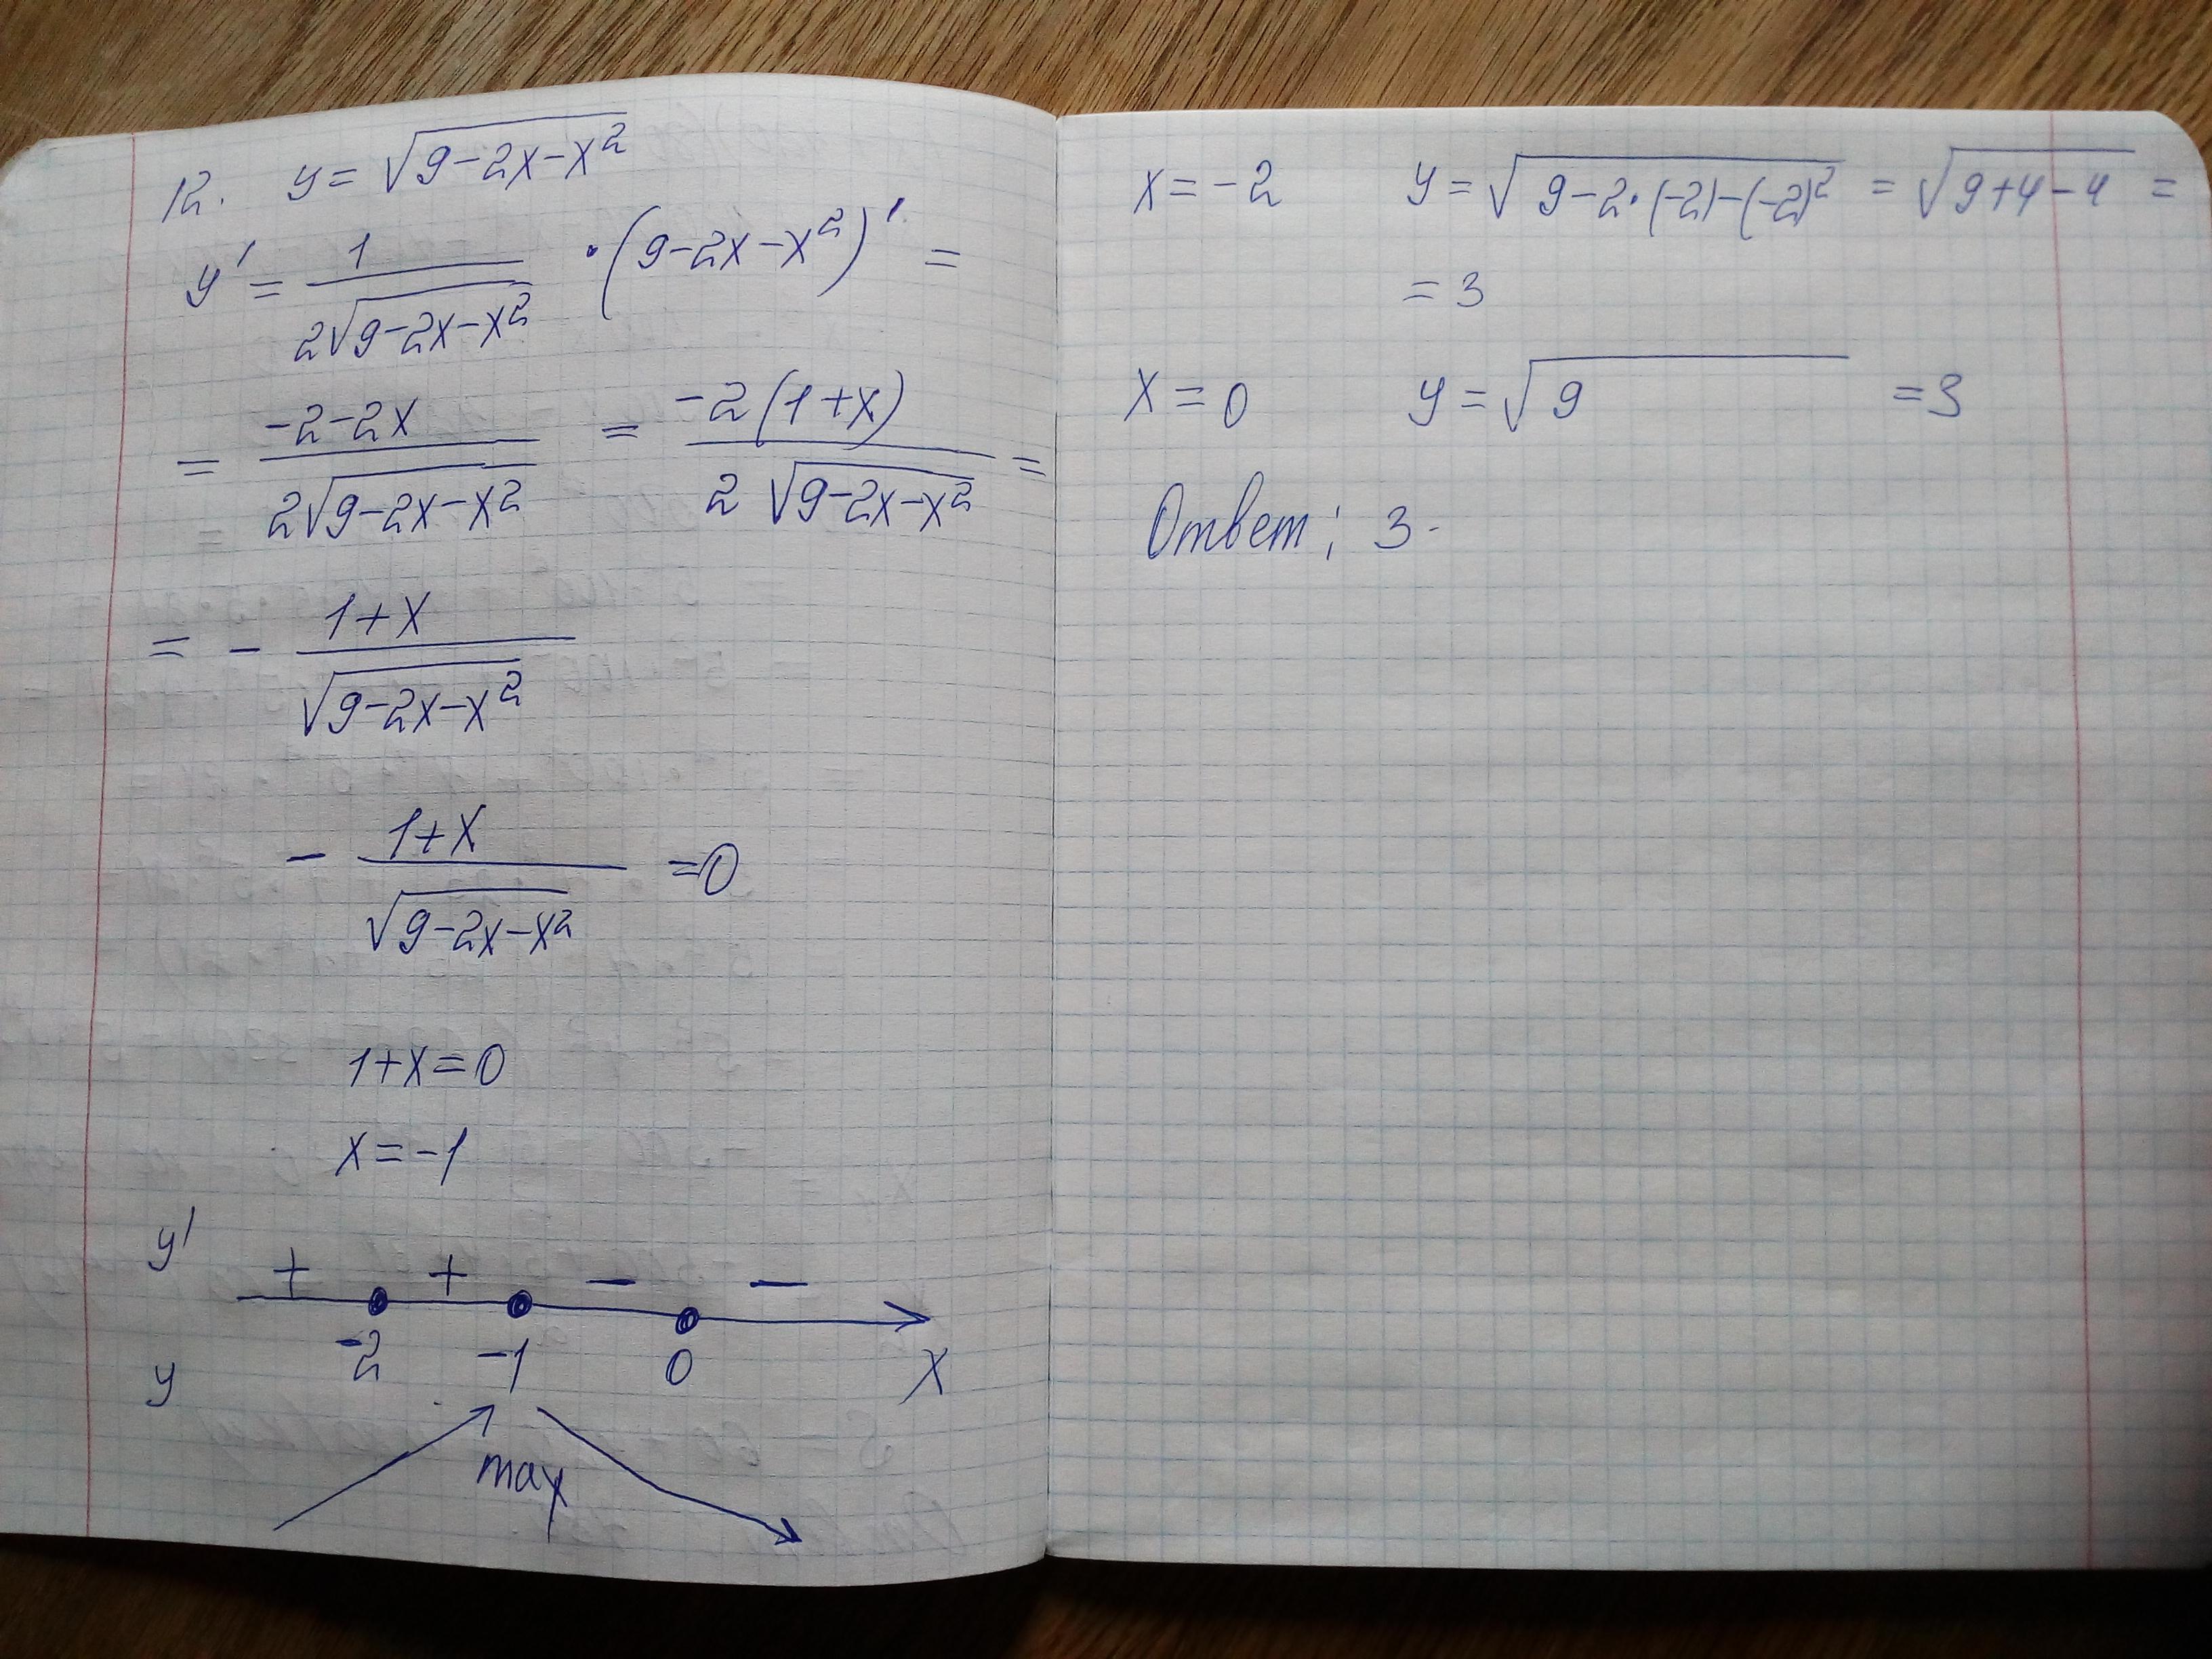 12. y = √(9-2x-x²)
y' = 1/(2√(9-2x-x²)) · (9-2x-x²)' =
= (-2-2x)/(2√(9-2x-x²)) = (-2(1+x))/(2√(9-2x-x²)) =
= - (1+x)/√(9-2x-x²)
- (1+x)/√(9-2x-x²) = 0
1+x=0
x=-1
y' + + - -
-2 -1 0 x
y
max
x=-2 y=√(9-2·(-2)-(-2)²) = √(9+4-4) =
= 3
x=0 y=√9 =3
Ответ: 3.